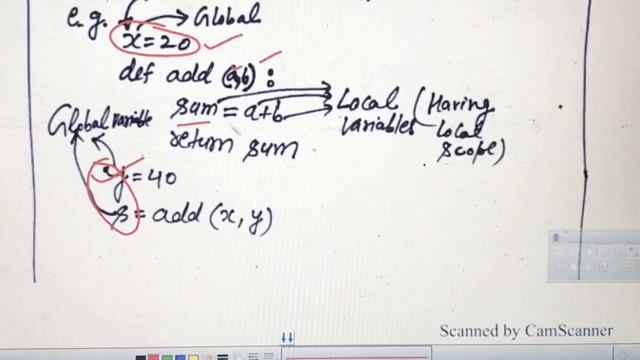 e.g. Global
x=20
def add (a,b) :
sum = a+b
Local variables (Having local scope)
Global variable
return sum
y = 40
s = add (x, y)
Scanned by CamScanner